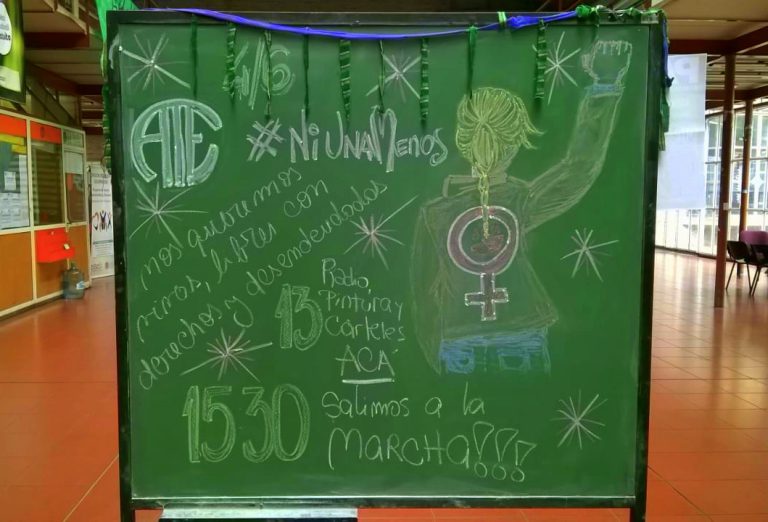 4/6
ATE
#NiUnaMenos
nos queremos
vivas, libres con
derechos y desendeudadas
13
Radio,
Pintura y
Carteles
ACÁ
1530
Salimos a la
MARCHA!!!